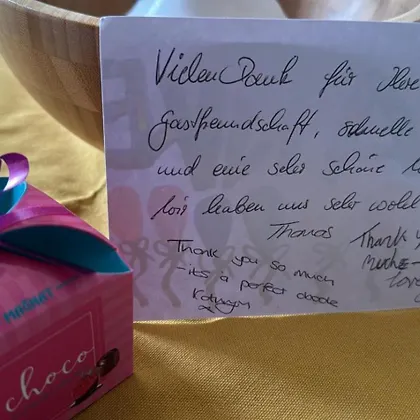 Vielen Dank für Ihre
Gastfreundschaft, schnelle
und eine sehr schöne
wir haben uns sehr wohl
Thomas
Thank you so much
- it's a perfect abode
Thank
much
love
choco